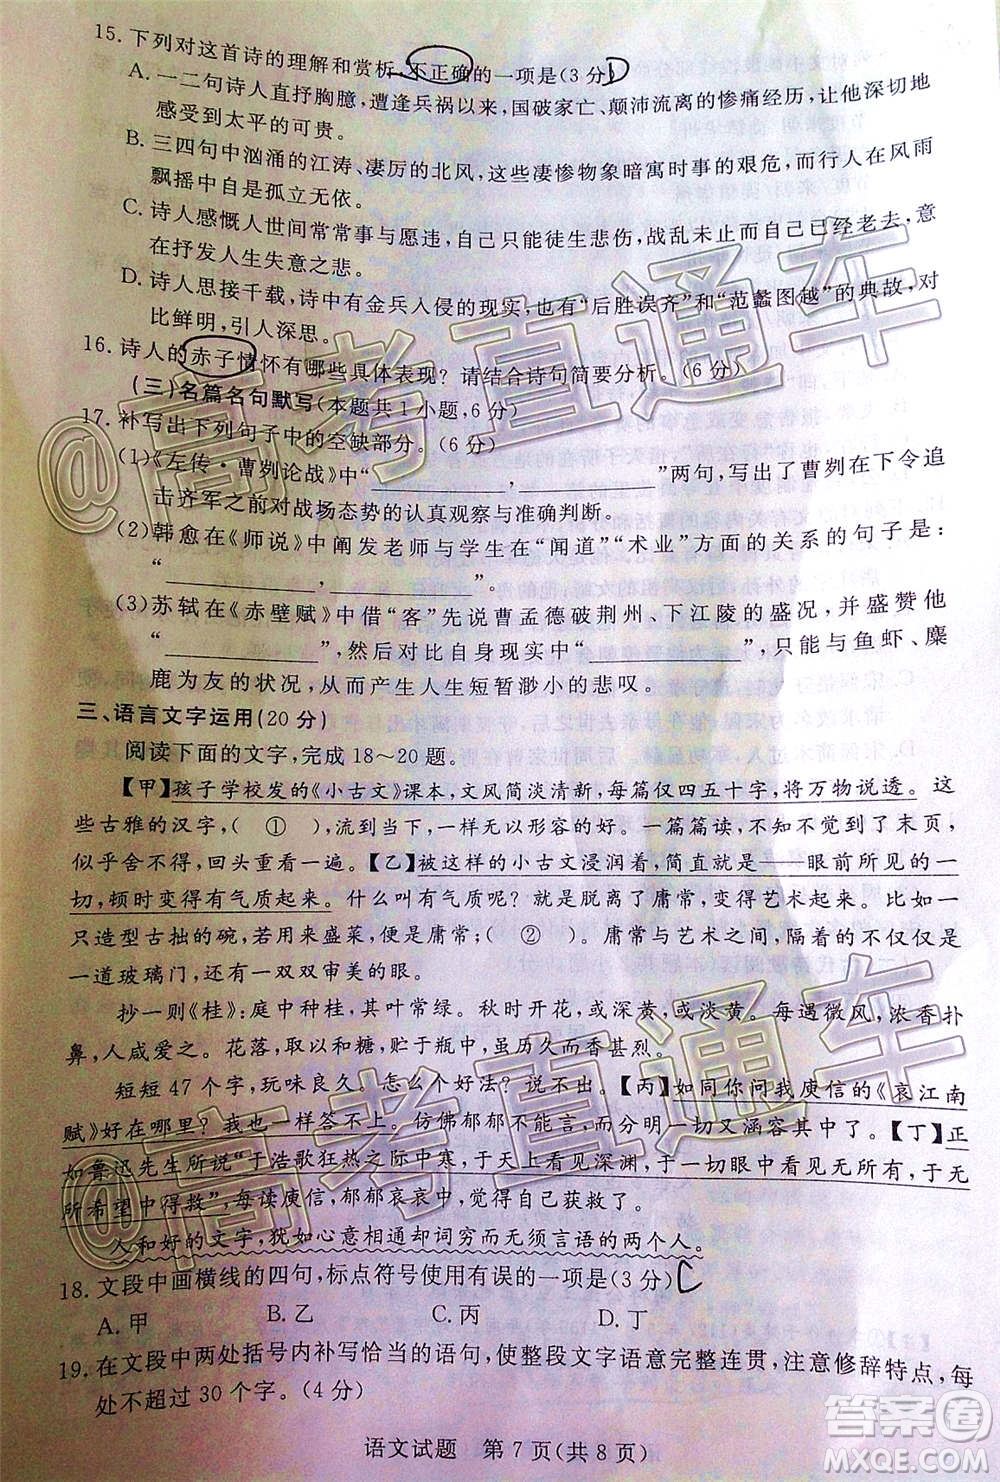 15. 下列对这首诗的理解和赏析,不正确的一项是(3分)
A. 一二句诗人直抒胸臆,遭逢兵祸以来,国破家亡、颠沛流离的惨痛经历,让他深切地
感受到太平的可贵。
B. 三四句中汹涌的江涛、凄厉的北风,这些凄惨物象暗寓时事的艰危,而行人在风雨
飘摇中自是孤立无依。
C. 诗人感慨人世间常常事与愿违,自己只能徒生悲伤,战乱未止而自己已经老去,意
在抒发人生失意之悲。
D. 诗人思接千载,诗中有金兵入侵的现实,也有“后胜误齐”和“范蠡图越”的典故,对
比鲜明,引人深思。
16. 诗人的赤子情怀有哪些具体表现?请结合诗句简要分析。(6分)
(三)名篇名句默写(本题共1小题,6分)
17. 补写出下列句子中的空缺部分。(6分)
(1)《左传·曹刿论战》中“__________,__________”两句,写出了曹刿在下令追
击齐军之前对战场态势的认真观察与准确判断。
(2)韩愈在《师说》中阐发老师与学生在“闻道”“术业”方面的关系的句子是:
“__________,__________”。
(3)苏轼在《赤壁赋》中借“客”先说曹孟德破荆州、下江陵的盛况,并盛赞他
“__________”,然后对比自身现实中“__________”,只能与鱼虾、麋
鹿为友的状况,从而产生人生短暂渺小的悲叹。
三、语言文字运用(20分)
阅读下面的文字,完成18～20题。
【甲】孩子学校发的《小古文》课本,文风简淡清新,每篇仅四五十字,将万物说透。这
些古雅的汉字,( ① ),流到当下,一样无以形容的好。一篇篇读,不知不觉到了末页,
似乎舍不得,回头重看一遍。【乙】被这样的小古文浸润着,简直是——眼前所见的一
切,顿时变得有气质起来。什么叫有气质?就是脱离了庸常,变得艺术起来。比如,
一只造型古拙的碗,若用来盛菜,便是庸常;( ② )。庸常与艺术之间,隔着的不过是
一道玻璃门,还有一双双审美的眼。
抄一则《桂》:庭中种桂,其叶常绿。秋时开花,或深黄,或淡黄。每遇微风,浓香扑
鼻,人咸爱之。花落,取以和糖,贮于瓶中,虽历久而香甚烈。
短短47个字,玩味良久。怎么个好法?说不出。【丙】如同你问我庾信的《哀江南
赋》好在哪里?我也一样答不上。仿佛郁郁不能言,分明一切又涵容其中了。【丁】正
如鲁迅先生所说“于浩歌狂热之际中寒,于天上看见深渊,于一切眼中看见无所有,于无
所希望中得救”,每读庾信,郁郁哀哀中,觉得自己获救了。
人和好的文字,犹如心意相通却词穷而无言语的两个人。
18. 文段中画横线的四句,标点符号使用有误的一项是(3分) C
A. 甲 B. 乙 C. 丙 D. 丁
19. 在文段中两处括号内补写恰当的语句,使整段文字语意完整连贯,注意修辞特点,每
处不超过30个字。(4分)
语文试题 第7页(共8页)
@高考直通车
@高考直通车
答案圈
MXQE.COM